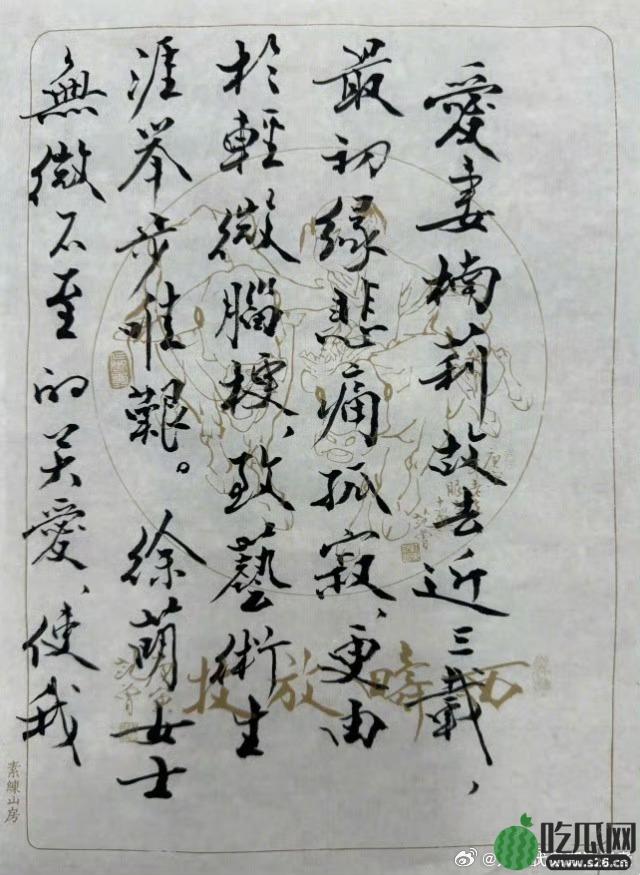 愛妻楠莉故去近三載，
最初緣悲痛孤寂、更由
於輕微腦梗、致藝術生
涯举步唯艱。徐萌女士
無微不至的关愛、使我
西疇放牧
范曾
素練山房
吃瓜网
www.s26.cn